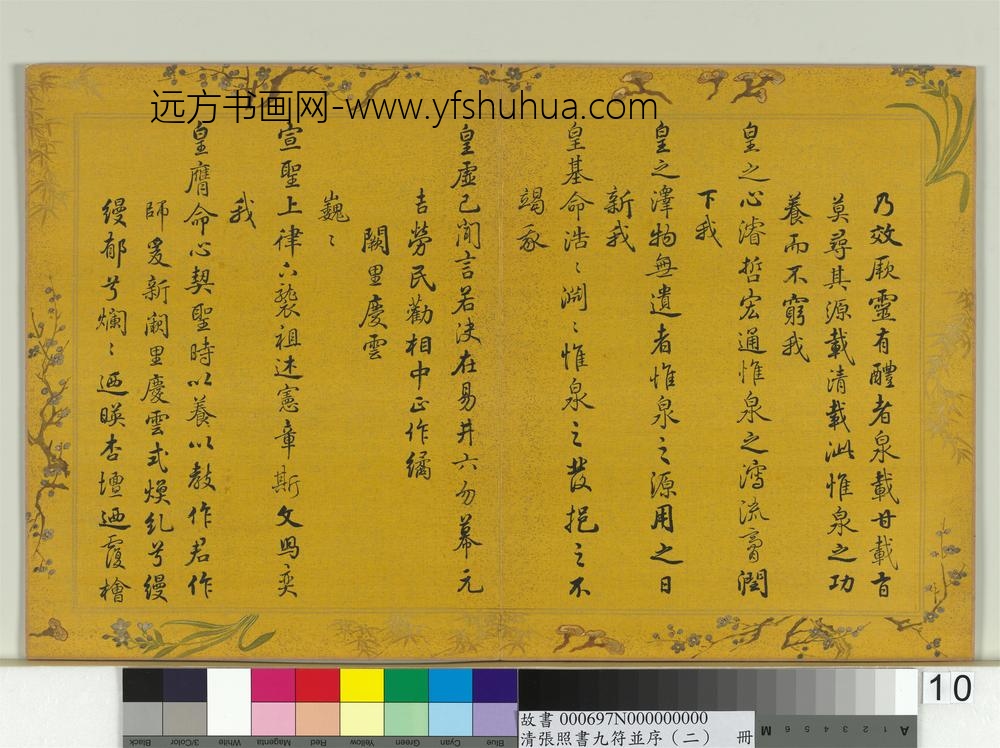 远方书画网-www.yfshuhua.com
乃效厥靈有醴者泉載甘載旨
莫尋其源載清載泚惟泉之功
養而不窮我
皇之心濬哲宏通惟泉之瀉流膏潤
下我
皇之澤物無遺者惟泉之源用之日
新我
皇基命浩〻淵〻惟泉之發挹之不
竭豕
皇虛己聞言若決在易井六勿幕元
吉勞民勸相中正作繘
闕里慶雲
巍〻
宣聖上律下襲祖述憲章斯文舄奕
我
皇膺命心契聖時以養以教作君作
師爰新闕里慶雲式煥糺兮縵
縵郁兮爛〻迺暎杏壇迺覆檜
10
故書 000697N000000000
清張照書九符並序（二） 冊
Black
3/Color
White
Magenta
Red
Yellow
Green
Cyan
Blue
A 1 2 3 4 5 6 M